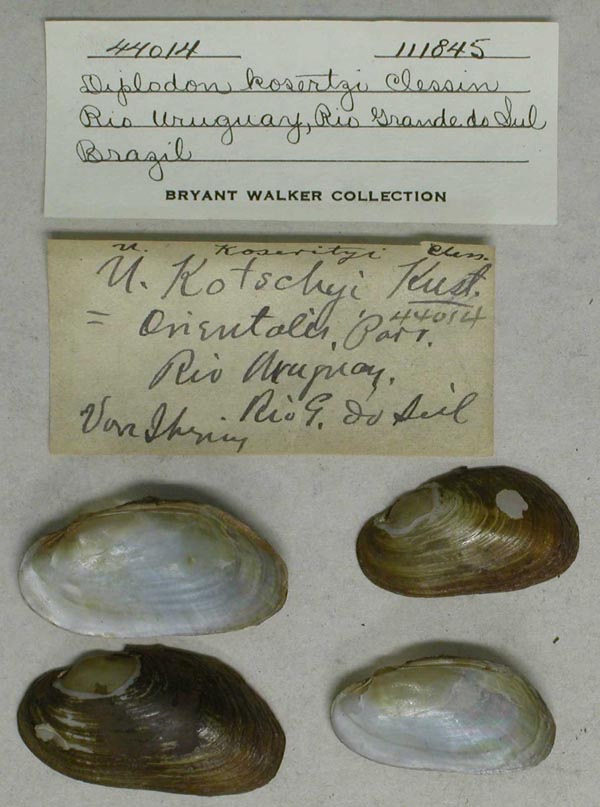 44014 111845
Diplodon kosertzi Clessin
Rio Uruguay, Rio Grande do Sul
Brazil
BRYANT WALKER COLLECTION
U. Koseritzi Cless.
U. Kotschyi Kust.
44014
= Orientalis, Parr.
Rio Uruguay.
Rio G. do Sul
Von Ihering